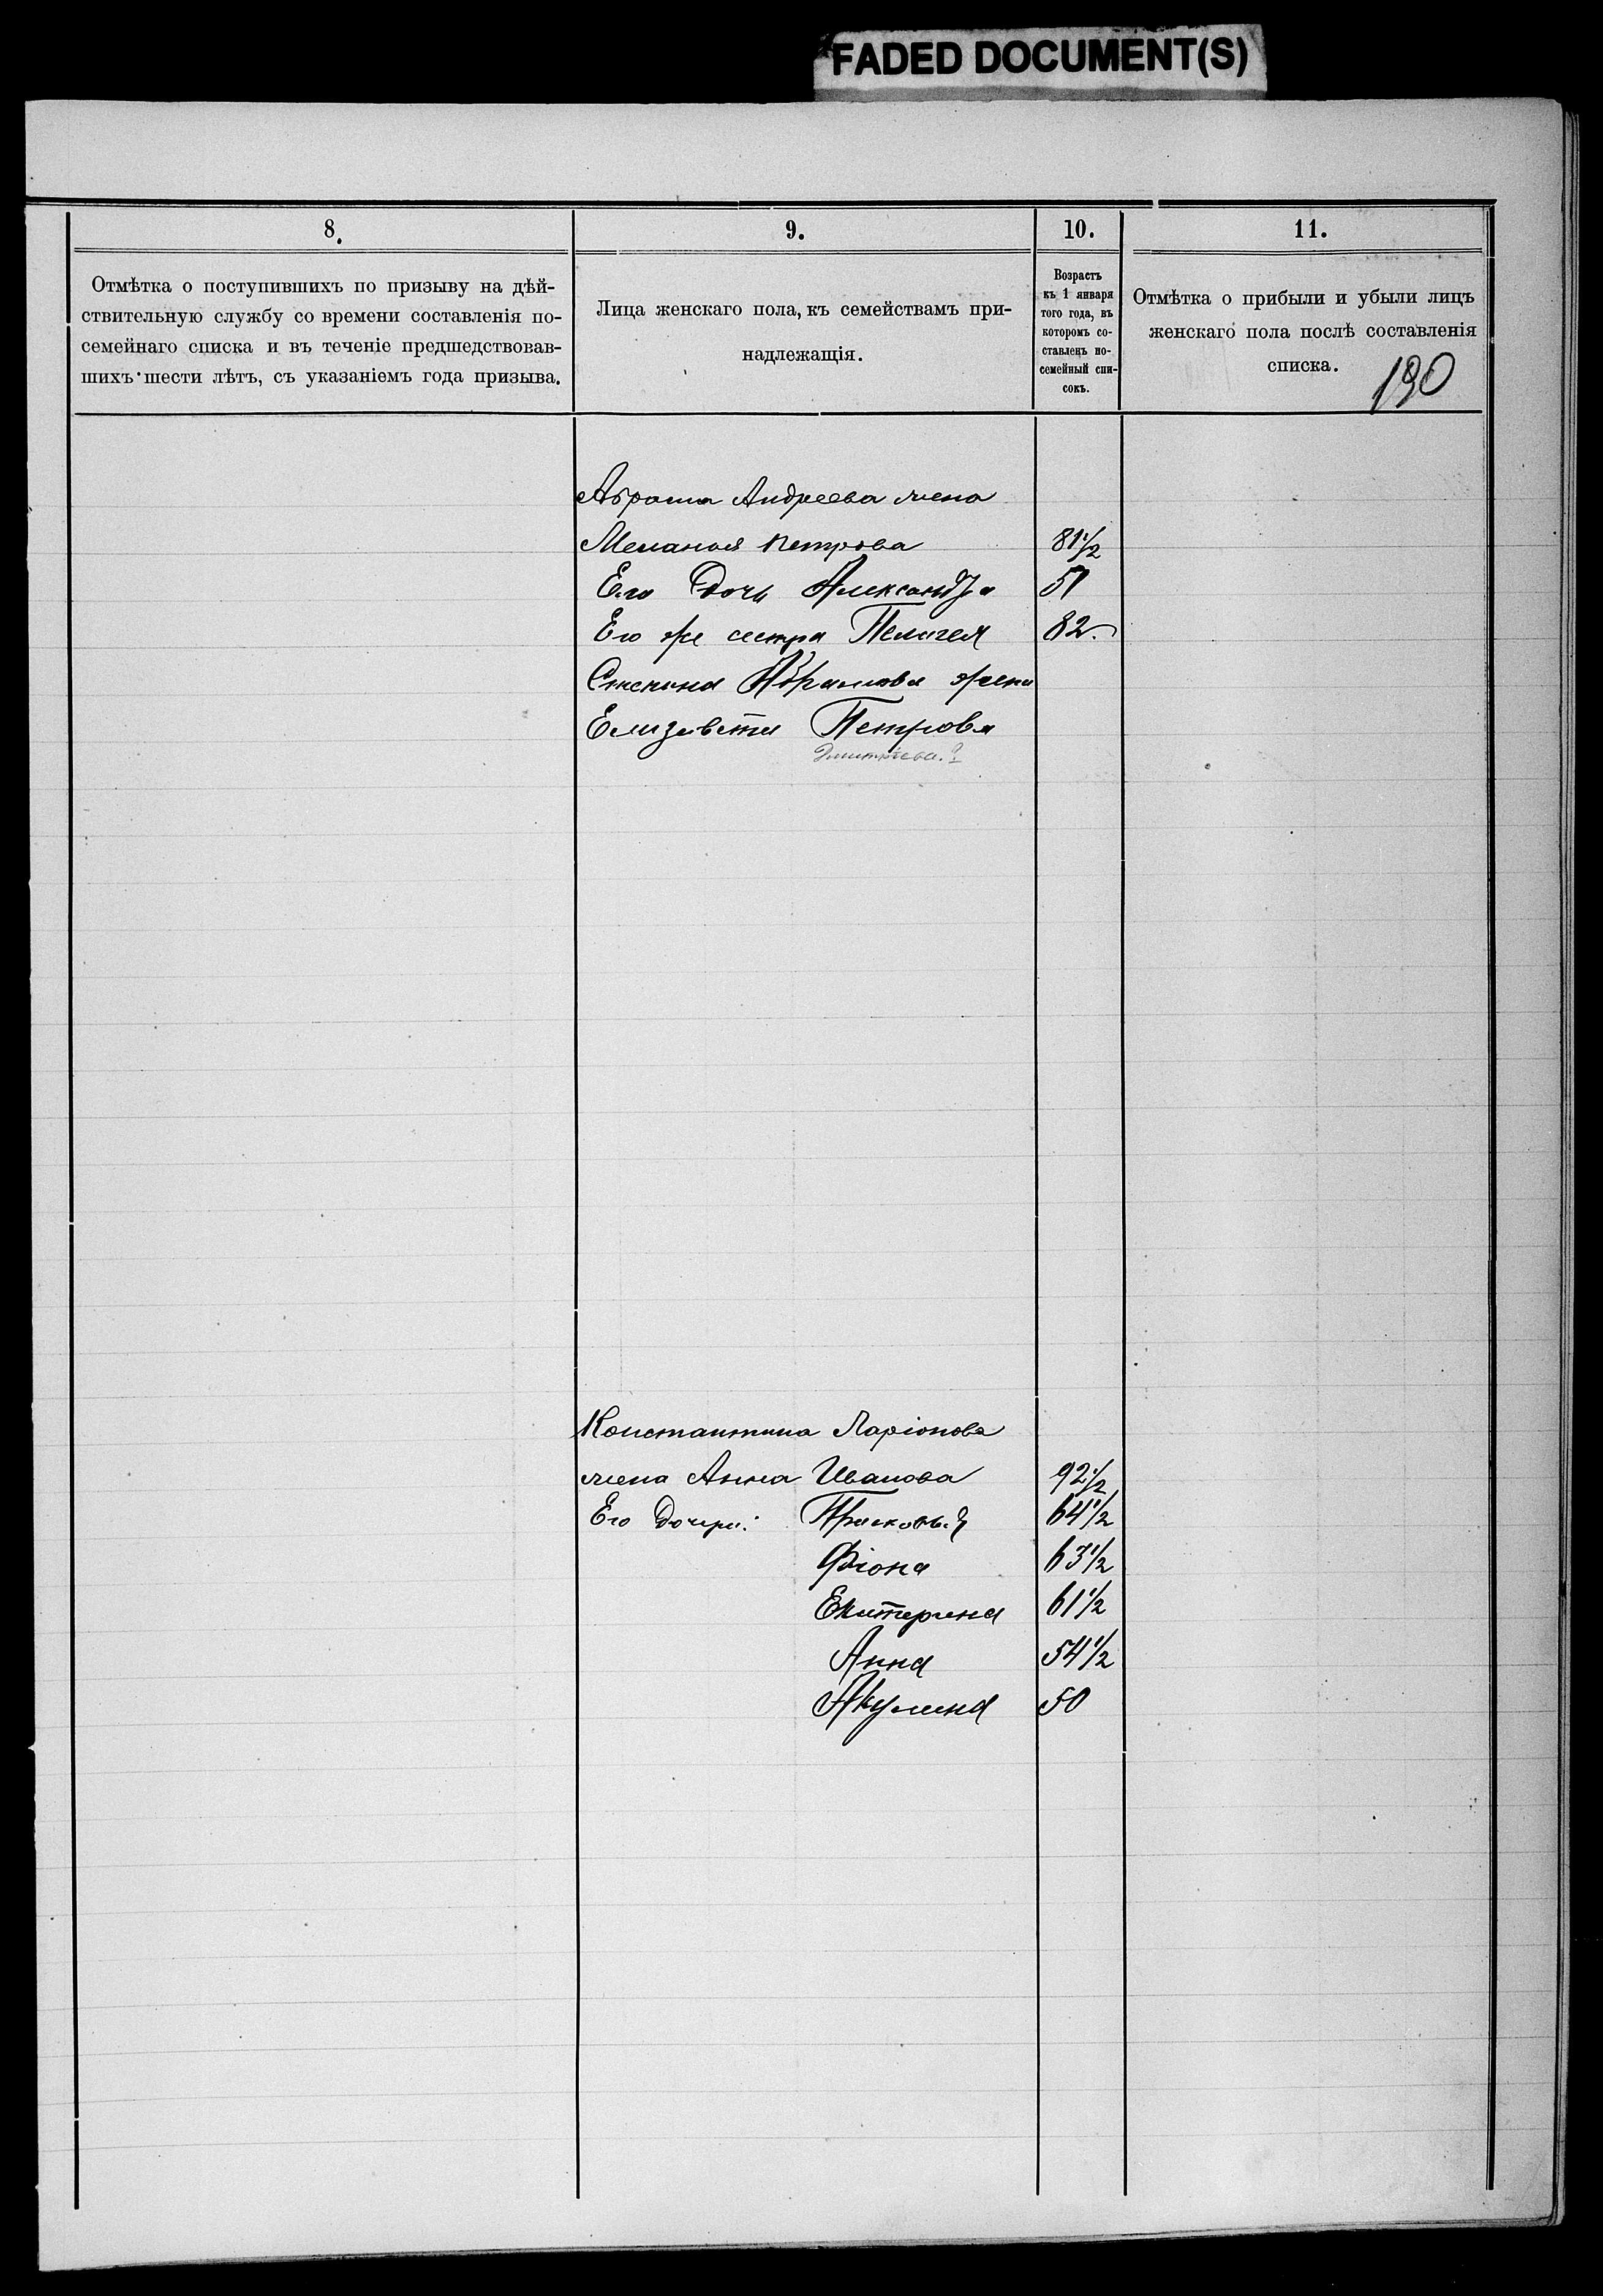 FADED DOCUMENT(S)
8.
Отмѣтка о поступившихъ по призыву на дѣй-
ствительную службу со времени составленія по-
семейнаго списка и въ теченіе предшедствовав-
шихъ шести лѣтъ, съ указаніемъ года призыва.
9.
Лица женскаго пола, къ семействамъ при-
надлежащія.
10.
Возрастъ
къ 1 января
того года, въ
которомъ со-
ставленъ по-
семейный спи-
сокъ.
11.
Отмѣтка о прибыли и убыли лицъ
женскаго пола послѣ составленія
списка.
190
Абрама Андреева жена
Меланья Петрова 81½
Его дочь Александра 57
Его же сестра Пелагея 82.
Степана Абрамова жена
Елизавета Петрова
Дмитріева.?
Константина Ларіонова
жена Анна Иванова 92½
Его дочери: Прасковья 64½
Фіона 63½
Екатерина 61½
Анна 54½
Акулина 50